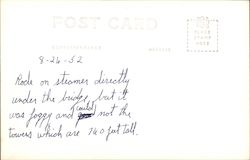 POST CARD
PLACE
STAMP
HERE
CORRESPONDENCE
ADDRESS
8-26-52
Rode on steamer directly
under the bridge, but it
(could)
was foggy and not the
towers which are 740 feet tall.